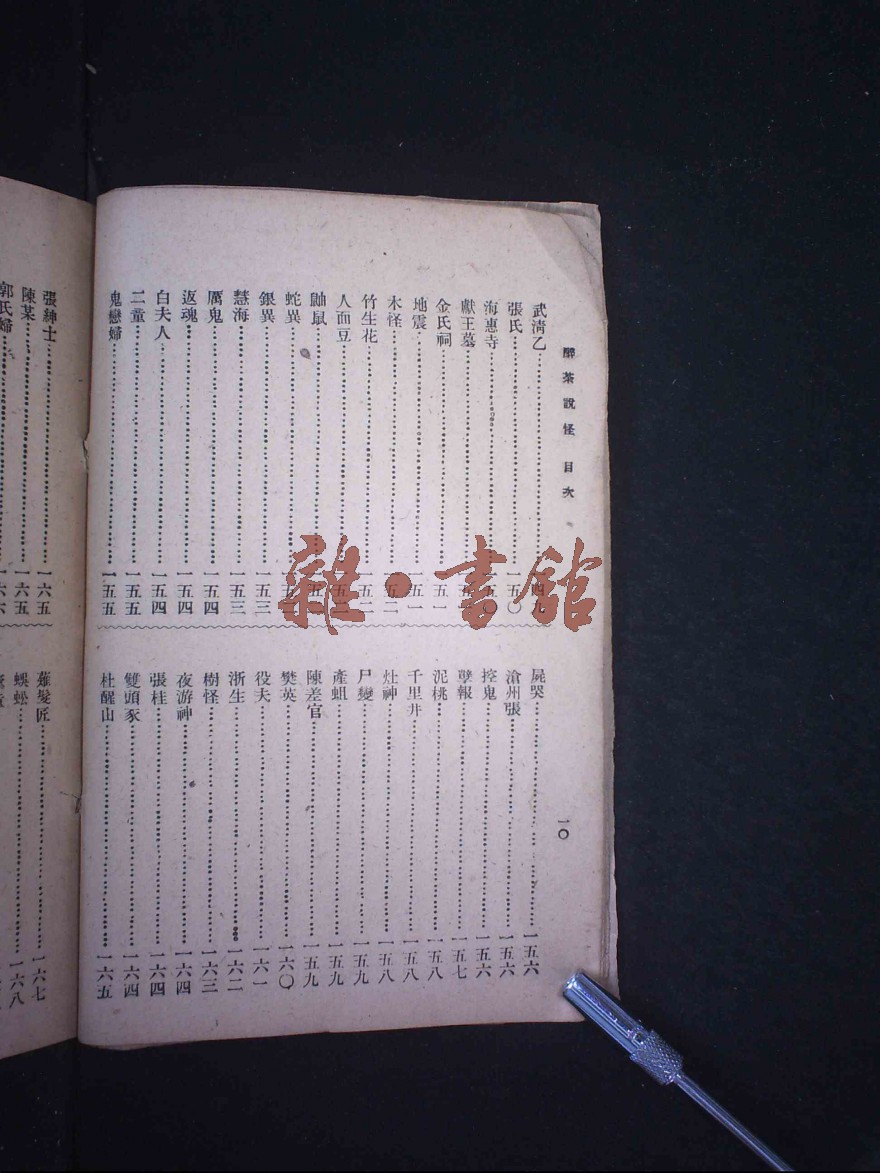 醉茶說怪 目次
一〇
武淸乙……一四九
張氏……一五〇
海惠寺……五〇
獻王墓……五
金氏祠……五一
地震……五一
木怪……五二
竹生花……五二
人面豆……五
鼬鼠……五
蛇異……五
銀異……一五三
慧海……一五三
厲鬼……一五四
返魂……一五四
白夫人……一五四
二童……一五五
鬼戀婦……一五五
屍哭……一五六
滄州張……一五六
控鬼……一五六
孽報……一五七
泥桃……一五八
千里井……一五八
灶神……一五八
尸變……一五九
產蛆……一五九
陳差官……一五九
樊英……一六〇
役夫……一六一
浙生……一六二
樹怪……一六三
夜游神……一六四
張桂……一六四
雙頭豕……一六四
杜醒山……一六五
張紳士……一六五
陳某……一六五
郭氏婦……一六六
薙髮匠……一六七
蜈蚣……一六八
雜·書館